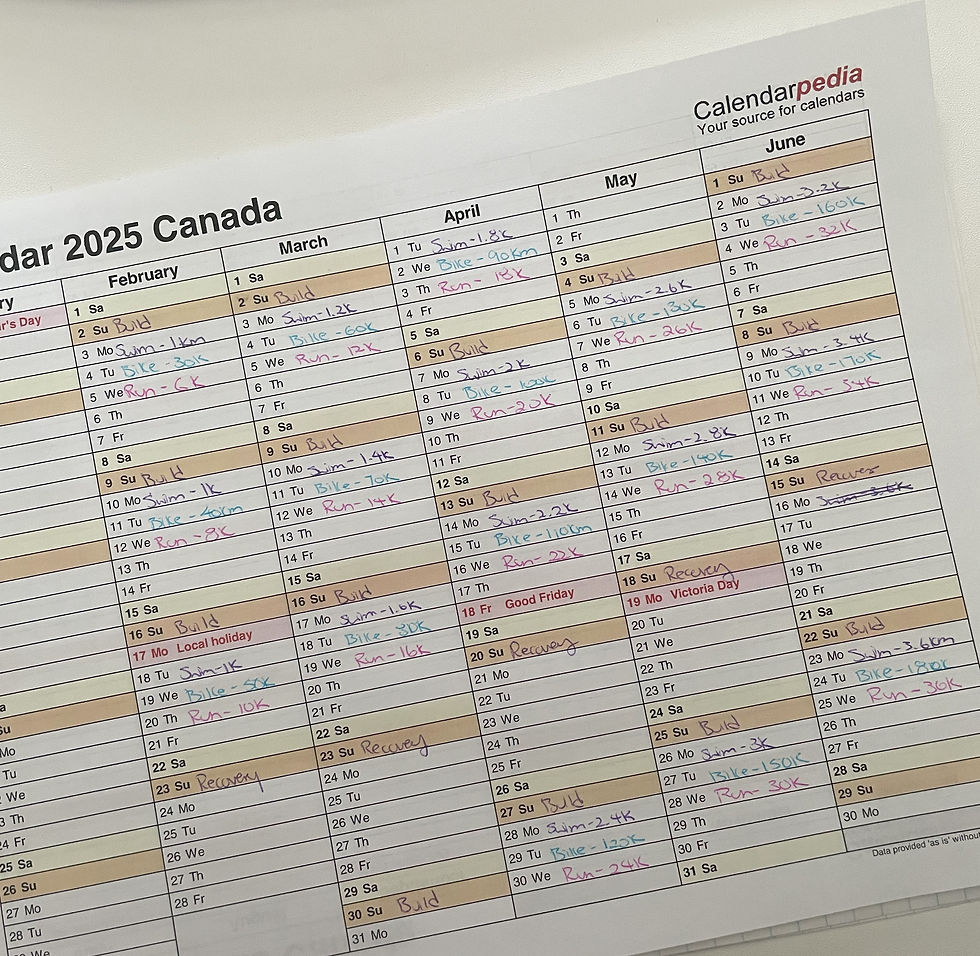 Calendarpedia
Your source for calendars
dar 2025 Canada
ry
r's Day
Su
Mo
Tu
We
3 Th
24 Fr
25 Sa
26 Su
27 Mo
28 Tu
We
February
1 Sa
2 Su Build
3 Mo Swim-1km
4 Tu Bike-30K
5 We Run-6K
6 Th
7 Fr
8 Sa
9 Su Build
10 Mo Swim-1K
11 Tu Bike-40km
12 We Run-8K
13 Th
14 Fr
15 Sa
16 Su Build
17 Mo Local holiday
18 Tu Swim-1K
19 We Bike-50K
20 Th Run-10K
21 Fr
22 Sa
23 Su Recovery
24 Mo
25 Tu
26 We
27 Th
28 Fr
March
1 Sa
2 Su Build
3 Mo Swim-1.2K
4 Tu Bike-60K
5 We Run-12K
6 Th
7 Fr
8 Sa
9 Su Build
10 Mo Swim-1.4K
11 Tu Bike-70K
12 We Run-14K
13 Th
14 Fr
15 Sa
16 Su Build
17 Mo Swim-1.6K
18 Tu Bike-80K
19 We Run-16K
20 Th
21 Fr
22 Sa
23 Su Recovery
24 Mo
25 Tu
26 We
27 Th
28 Fr
29 Sa
30 Su Build
31 Mo
April
1 Tu Swim-1.8K
2 We Bike-90km
3 Th Run-18K
4 Fr
5 Sa
6 Su Build
7 Mo Swim-2K
8 Tu Bike-100K
9 We Run-20K
10 Th
11 Fr
12 Sa
13 Su Build
14 Mo Swim-2.2K
15 Tu Bike-110km
16 We Run-22K
17 Th
18 Fr Good Friday
19 Sa
20 Su Recovery
21 Mo
22 Tu
23 We
24 Th
25 Fr
26 Sa
27 Su Build
28 Mo Swim-2.4K
29 Tu Bike-120K
30 We Run-24K
May
1 Th
2 Fr
3 Sa
4 Su Build
5 Mo Swim-2.6K
6 Tu Bike-130K
7 We Run-26K
8 Th
9 Fr
10 Sa
11 Su Build
12 Mo Swim-2.8K
13 Tu Bike-140K
14 We Run-28K
15 Th
16 Fr
17 Sa
18 Su Recovery
19 Mo Victoria Day
20 Tu
21 We
22 Th
23 Fr
24 Sa
25 Su Build
26 Mo Swim-3K
27 Tu Bike-150K
28 We Run-30K
29 Th
30 Fr
31 Sa
June
1 Su Build
2 Mo Swim-3.2K
3 Tu Bike-160K
4 We Run-32K
5 Th
6 Fr
7 Sa
8 Su Build
9 Mo Swim-3.4K
10 Tu Bike-170K
11 We Run-34K
12 Th
13 Fr
14 Sa
15 Su Recover
16 Mo Swim-3.6K
17 Tu
18 We
19 Th
20 Fr
21 Sa
22 Su Build
23 Mo Swim-3.6km
24 Tu Bike-180K
25 We Run-36K
26 Th
27 Fr
28 Sa
29 Su
30 Mo
Data provided 'as is' without